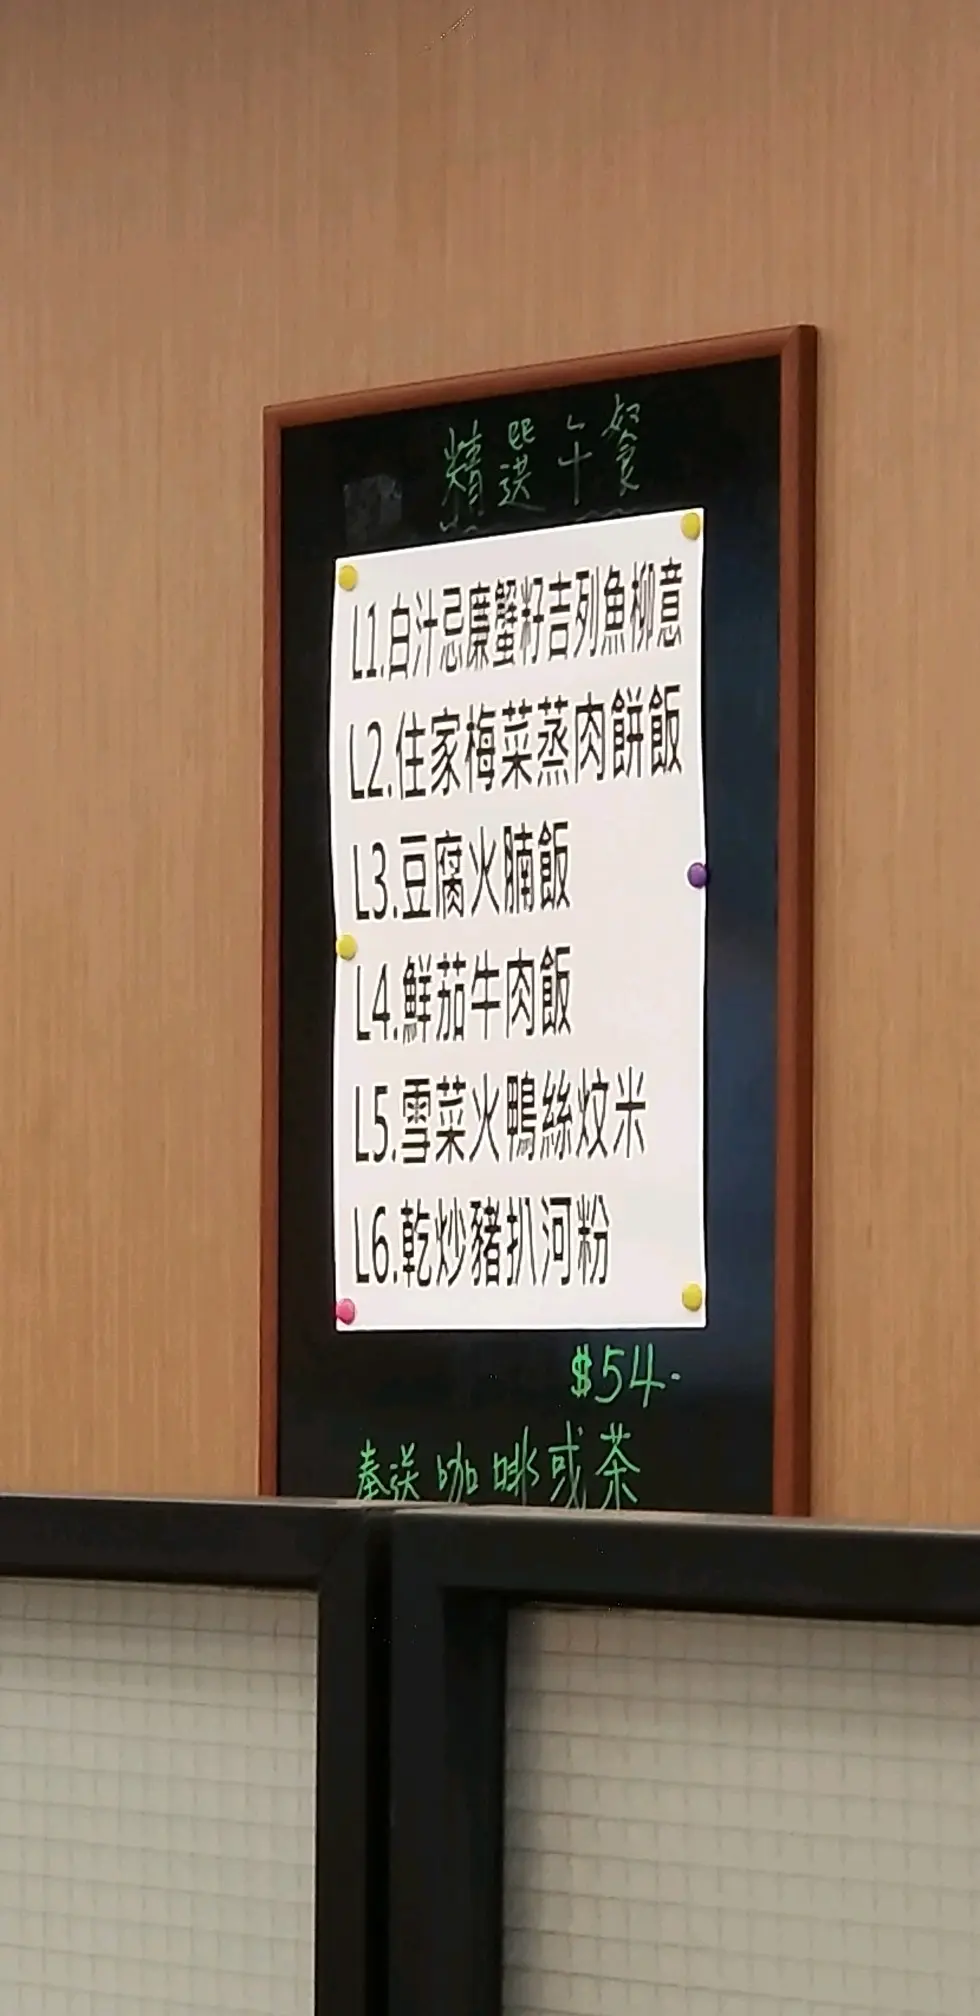 精選午餐
L1.白汁忌廉蟹籽吉列魚柳意
L2.住家梅菜蒸肉餅飯
L3.豆腐火腩飯
L4.鮮茄牛肉飯
L5.雪菜火鴨絲炆米
L6.乾炒豬扒河粉
$54.
奉送咖啡或茶